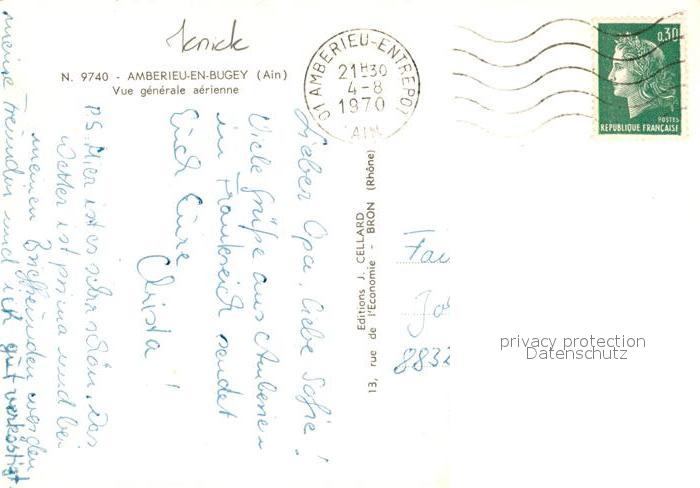 Knick
N. 9740 - AMBERIEU-EN-BUGEY (Ain)
Vue générale aérienne
01 AMBERIEU-ENTREPOT
21H30
4-8
1970
AIN
0,30
POSTES
REPUBLIQUE FRANÇAISE
Lieber Opa, liebe Sofie!
Viele Grüße aus Amberieu
in Frankreich sendet
Euch Eure
Christa!
PS. Hier ist es sehr schön. Das
Wetter ist prima und bei
meinen Brieffreunden werden
meine Freundin und ich gut verköstigt.
Editions J. CELLARD
13, rue de l'Economie - BRON (Rhône)
Fau
Jo
8832
privacy protection
Datenschutz